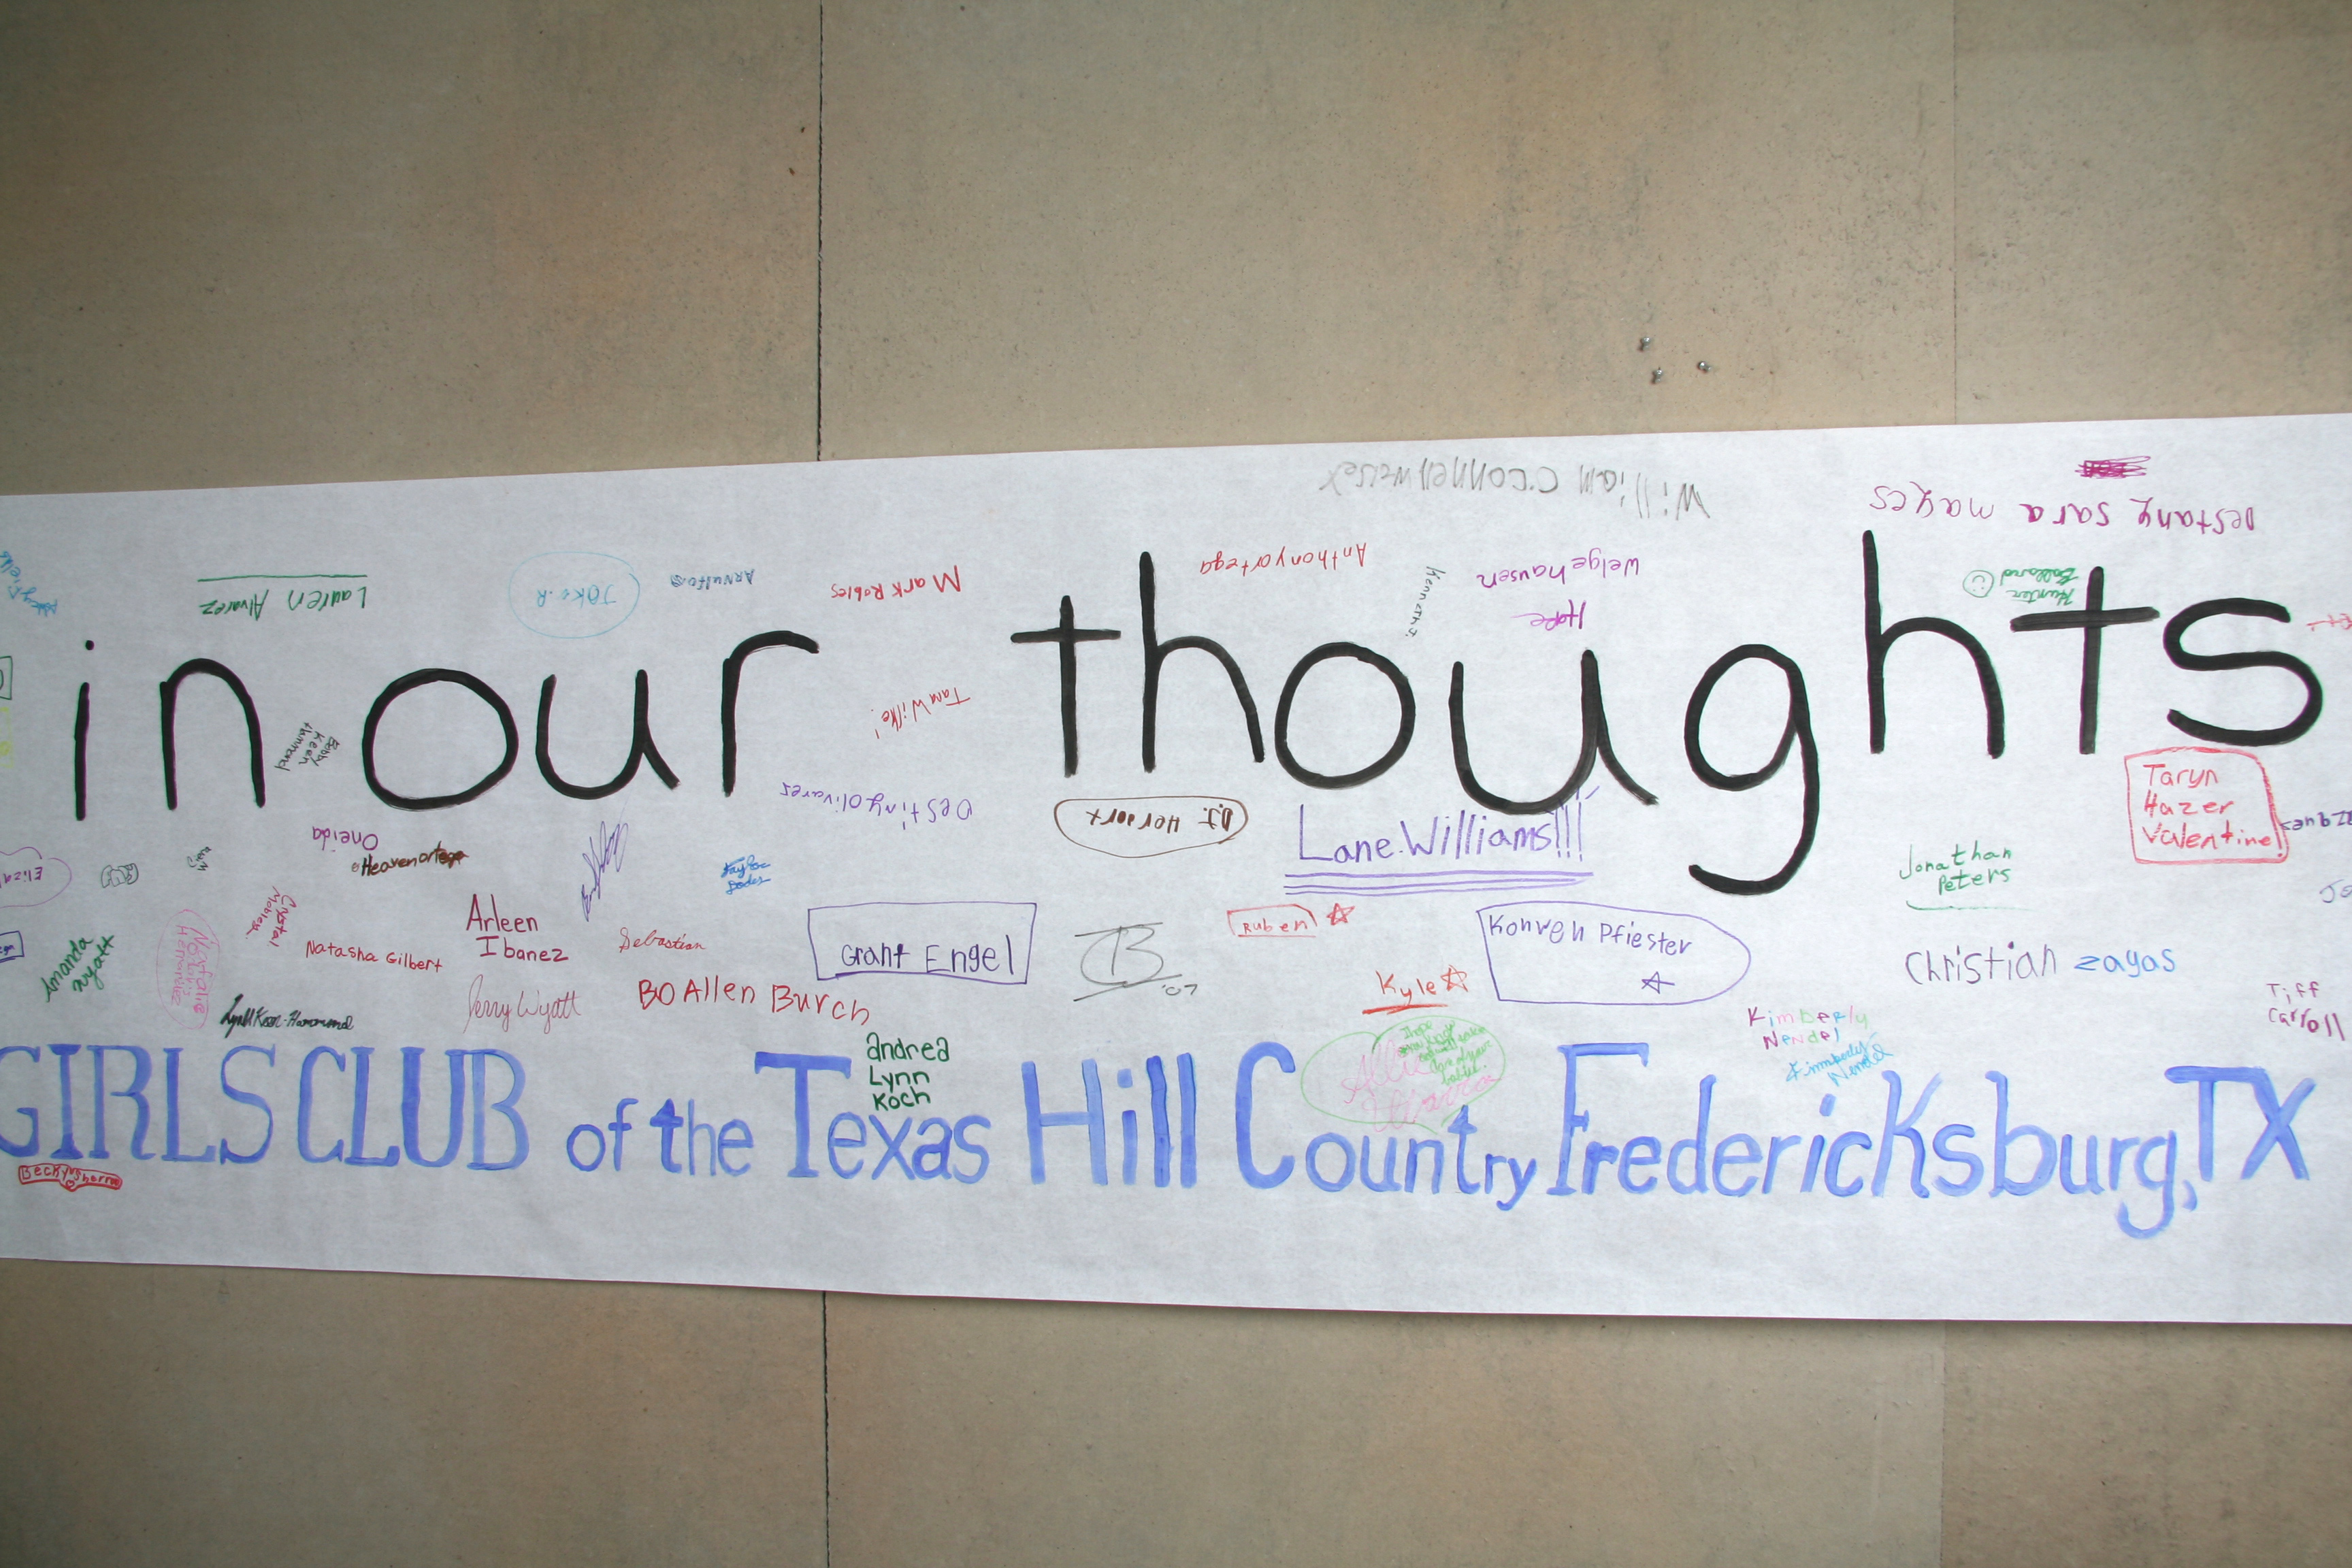 William C. Connell
Destany Sara mayes
Lauren
Alvarez
Arnulfo
Mark Robles
Anthony ortega
Kenneth J.
Hope
Welgehausen
Hunter
in our thoughts
Bobby
Keen
Hammond
Tara Wilke!
Destiny Olivares
D.J. Hersort
Lane Williams!!!
Taryn
Hazer
Valentine!
Oneida
Heaven ortega
Taylor
Jonathan
Peters
Crystal
Mobley
Arleen
Ibanez
Sebastian
Grant Engel
B '07
Ruben
Konnen Pfiester
Amanda
Wyatt
Natalie
Hernandez
Natasha Gilbert
Christian zayas
Jerry Wyatt
BO Allen Burch
Kyle
Tiff
Carroll
Kimberly
Nendel
Kimmperly
Nendel
andrea
Lynn
Koch
Allie
GIRLS CLUB of the Texas Hill Country Fredericksburg, TX
Becky Sharron